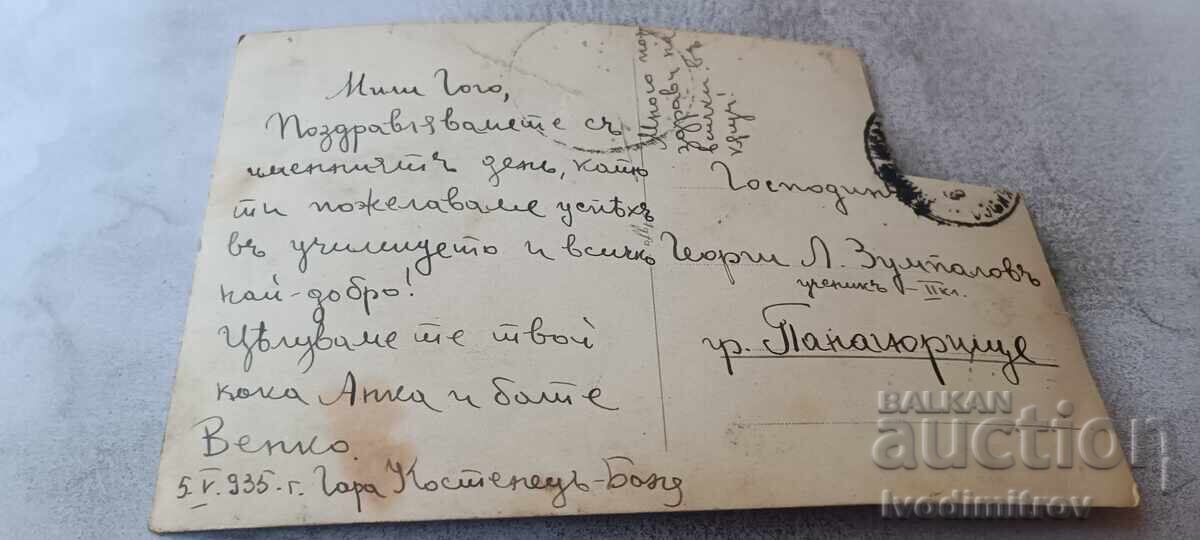 Мили Гого,
Поздравляваме те съ
именниятъ день, като
ти пожелаваме успѣхъ
въ училището и всичко
най-добро!
Цѣлуваме те твой
кака Анка и бате
Венко.
5.V.935.г. Гара Костенецъ-Баня
Много поз
здрави на
всички въ
кящи!
Господинъ
Георги Л. Зумпаловъ
ученикъ - II кл.
гр. Панагюрище
BALKAN
auction
Ivodimitrov